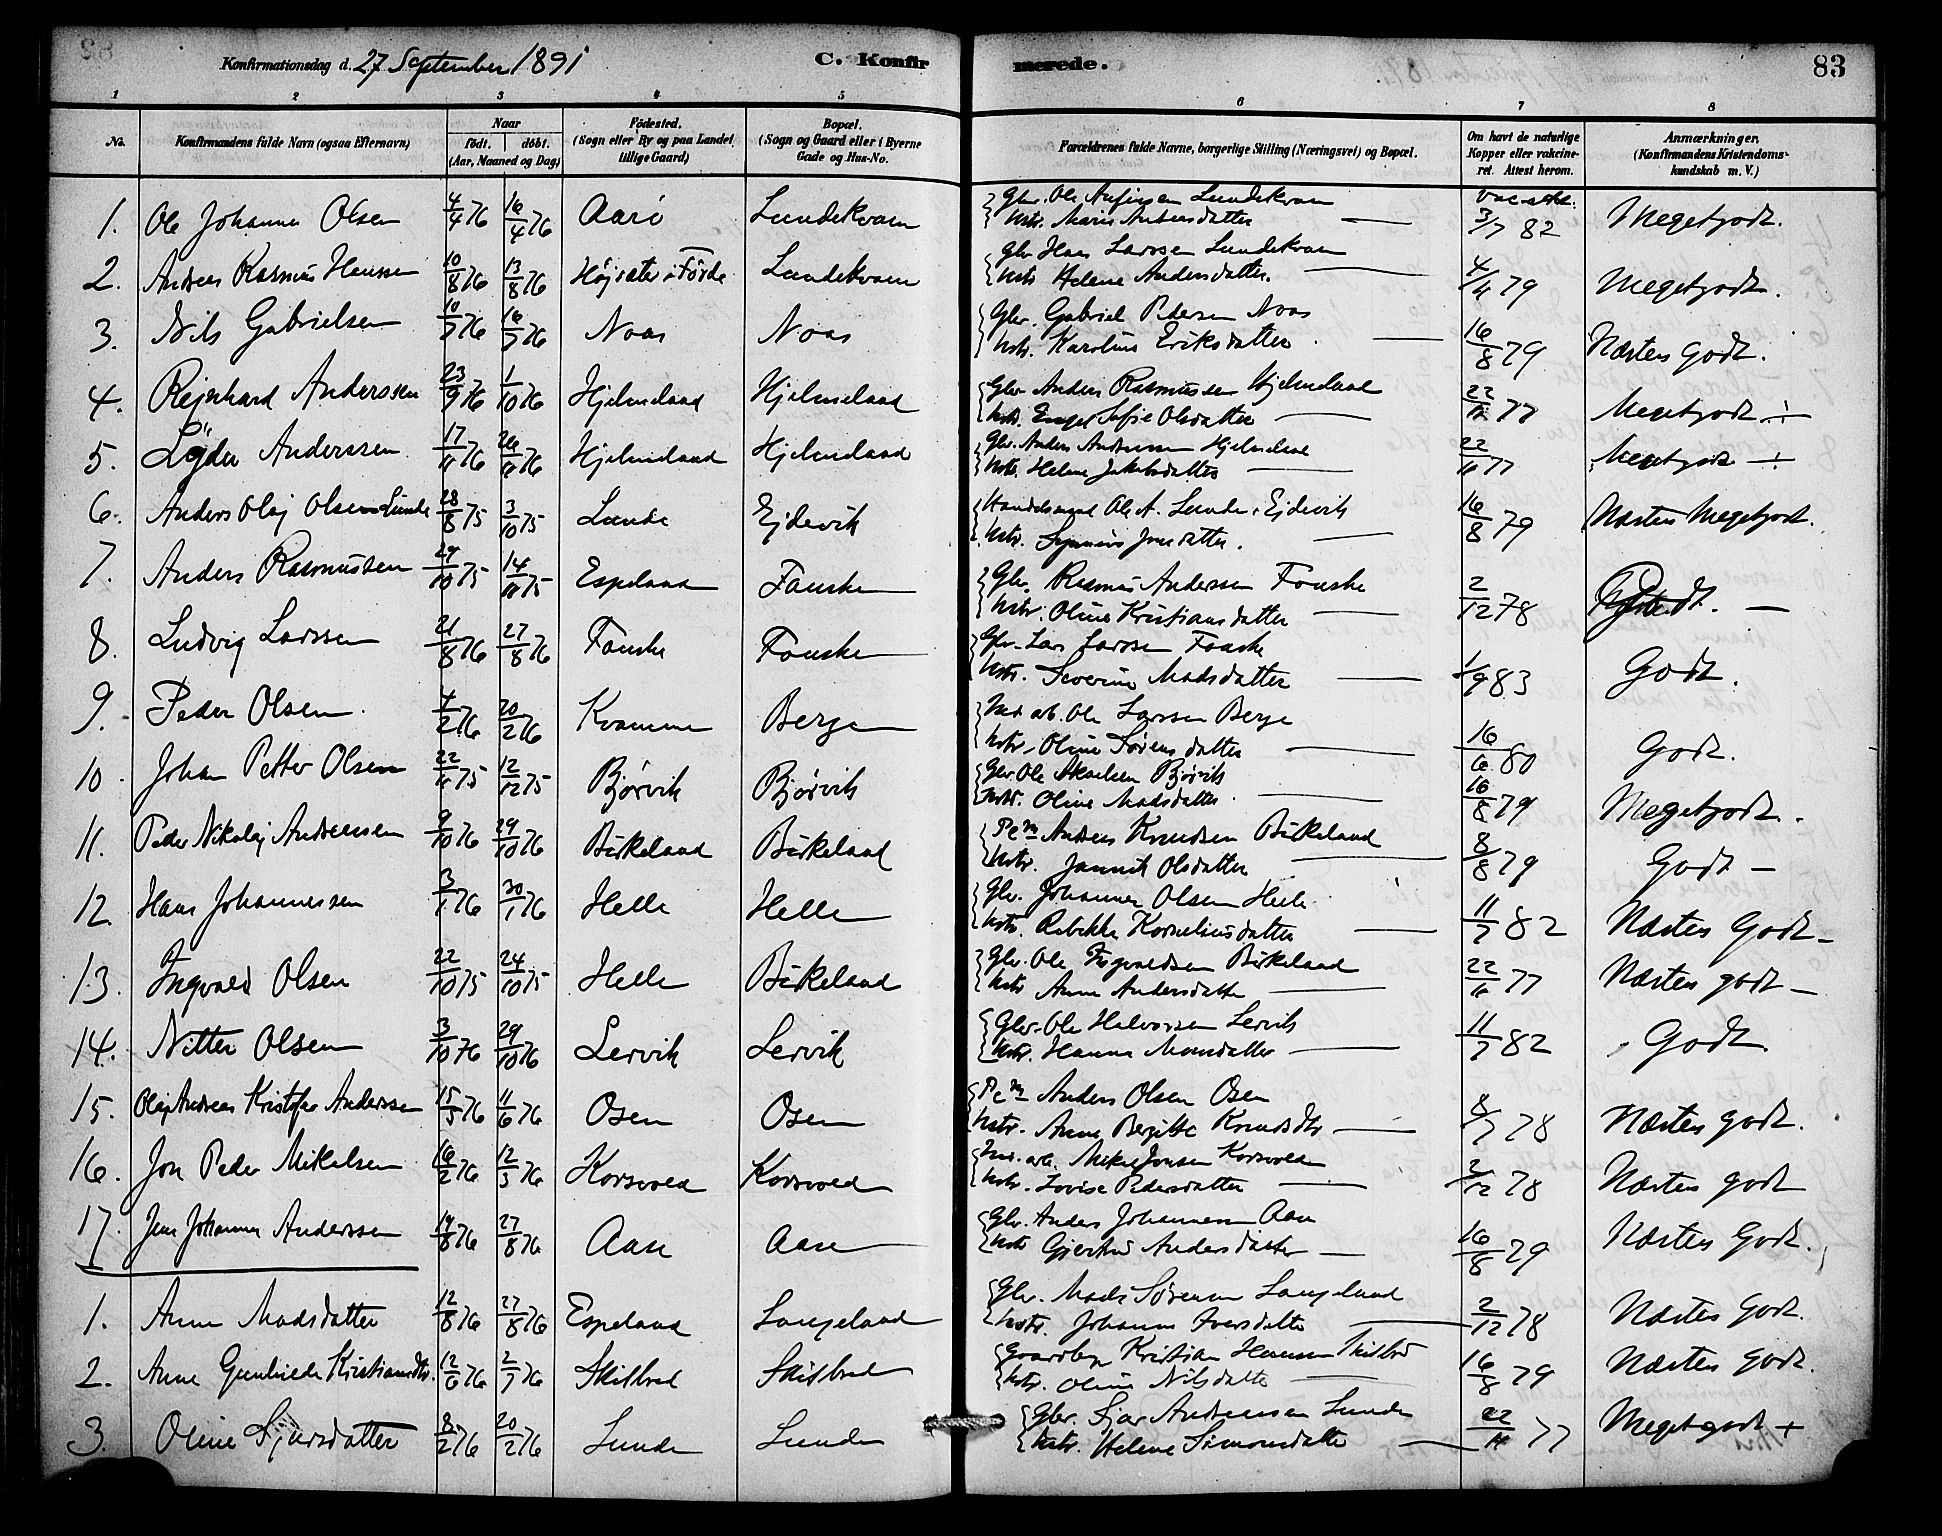 Konfirmationsdag d. 27 September 1891 C. Konfirmerede. 83
1 2 3 4 5 6 7 8
No. Konfirmandens fulde Navn (ogsaa Efternavn) Naar født. døbt. (Aar, Maaned og Dag) Fødested. (Sogn eller By og paa Landet tillige Gaard) Bopæl. (Sogn og Gaard eller i Byerne Gade og Hus-No. Forældrenes fulde Navne, borgerlige Stilling (Næringsvei) og Bopæl. Om havt de naturlige Kopper eller vakcineret. Attest herom. Anmærkninger, (Konfirmandens Kristendomskundskab m. V.)
1. Ole Johannes Olsen 4/4 76 16/4 76 Aarö Lundekvam Gbr. Ole Lundekvam
Hstr. Marie Andersdatter — 3/7 82 Megetgodt.
2. Andreas Rasmus Hanssen 10/8 76 13/8 76 Højsæter i Førde Lundekvam Gbr Hans Larssen Lundekvam
Hstr Helene Andersdatter. — 4/4 79 Megetgodt.
3. Nils Gabrielsen 10/7 76 16/7 76 Noas Noas Gbr. Gabriel Pedersen Noas
Hstr. Karoline Eriksdatter — 16/8 79 Næsten Godt.
4. Rejnhard Anderssen 23/9 76 1/10 76 Hjelmeland Hjelmeland Gbr Anders Rasmussen Hjelmeland
Hstr. Engel Sofie Olsdatter — 22/11 77 Megetgodt ÷
5. Anderssen 17/11 76 26/11 76 Hjelmeland Hjelmeland Gbr. Anders Andersen Hjelmeland
Hstr. Helene Jakobsdatter — 22/11 77 Megetgodt ÷
6. Anders Olaj Olsen Lunde 28/8 75 3/10 75 Lunde Ejdevik Handelsmand Ole A. Lunde, Ejdevik
Hstr. Synneve Jonsdatter. — 16/8 79 Næsten Megetgodt.
7. Anders Rasmussen 24/10 75 14/11 75 Espeland Fauske Gbr. Rasmus Andersen Fauske
Hstr. Oline Kristiansdatter — 2/12 78 —
8. Ludvig Larssen 21/8 76 27/8 76 Fauske Fauske Gbr. Lars Larssen Fauske
Hstr. Severine Madsdatter — 1/9 83 Godt.
9. Peder Olsen 4/2 76 20/2 76 Kvamme Berge arb. Ole Larssen Berge
Hstr. Oline Sørensdatter — 16/6 80 Godt.
10. Johan Petter Olsen 22/11 75 12/12 75 Bjørvik Bjørvik Gbr Ole Bjørvik
Hstr. Oline Madsdatter — 16/8 79 Megetgodt.
11. Peder Nikolaj Andreassen 9/10 76 29/10 76 Birkeland Birkeland Pl.m. Andreas Knudsen Birkeland
Hstr. Jannik Olsdatter — 8/8 79 Godt —
12. Hans Johannessen 3/1 76 30/1 76 Helle Helle Gbr. Johannes Olsen Helle
Hstr. Rebekka Korneliusdatter — 11/7 82 Næsten Godt —
13. Ingvald Olsen 22/10 75 24/10 75 Helle Birkeland Gbr. Ole Ingvaldsen Birkeland
Hstr Anne Andersdatter — 22/11 77 Næsten godt —
14. Nitter Olsen 3/10 76 29/10 76 Lervik Lervik Gbr. Ole Halvorsen Lervik
Hstr. Hanna Monsdatter — 11/7 82 Godt
15. Olaj Andreas Kristofer Anderssen 15/5 76 11/6 76 Osen Osen Pl.m. Anders Olsen Osen
Hstr. Anne Bergitte Knudsdtr — 8/7 78 Næsten godt.
16. Jon Peder Mikelsen 16/2 76 12/3 76 Korsvold Korsvold arb. Mikel Jonsen Korsvold
Hstr. Lovise Pedersdatter — 2/12 78 Næsten godt
17. Jens Johannes Anderssen 14/8 76 27/8 76 Aase Aase Gbr. Anders Johannessen Aase
Hstr Gjertrud Andersdatter — 16/8 79 Næsten Godt.
1. Anne Madsdatter 12/8 76 27/8 76 Espeland Langeland Gbr. Mads Sørensen Langeland
Hstr. Johanna Iversdatter — 2/12 78 Næsten Godt.
2. Anne Gunhilde Kristiansdtr. 12/6 76 2/7 76 Skilbred Skilbred Kristian Hansen Skilbred
Hstr. Oline Nilsdatter — 16/8 79 Næsten Godt.
3. Oline Sjursdatter 8/2 76 20/2 76 Lunde Lunde Gbr. Sjur Andreassen Lunde
Hstr. Helene Simonsdatter — 22/11 77 Megetgodt +